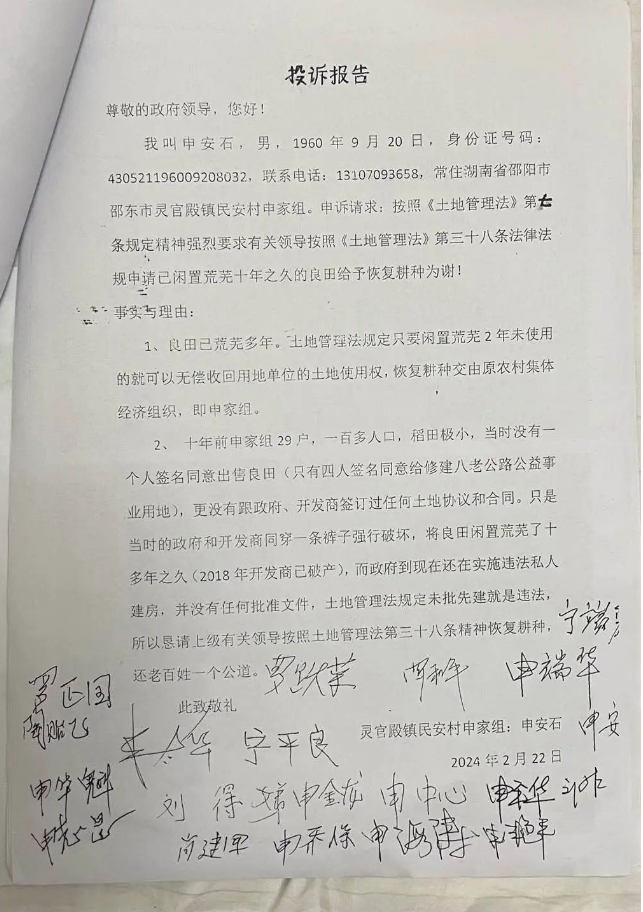 投诉报告
尊敬的政府领导，您好！
我叫申安石，男，1960 年 9 月 20 日，身份证号码：
430521196009208032，联系电话：13107093658，常住湖南省邵阳市
邵东市灵官殿镇民安村申家组。申诉请求：按照《土地管理法》第七
条规定精神强烈要求有关领导按照《土地管理法》第三十八条法律法
规申请已闲置荒芜十年之久的良田给予恢复耕种为谢！
事实与理由：
1、良田已荒芜多年。土地管理法规定只要闲置荒芜 2 年未使用
的就可以无偿收回用地单位的土地使用权，恢复耕种交由原农村集体
经济组织，即申家组。
2、 十年前申家组 29 户，一百多人口，稻田极小，当时没有一
个人签名同意出售良田（只有四人签名同意给修建八老公路公益事
业用地），更没有跟政府、开发商签订过任何土地协议和合同。只是
当时的政府和开发商同穿一条裤子强行破坏，将良田闲置荒芜了十
多年之久（2018 年开发商已破产），而政府到现在还在实施违法私人
建房，并没有任何批准文件，土地管理法规定未批先建就是违法，
所以恳请上级有关领导按照土地管理法第三十八条精神恢复耕种，
还老百姓一个公道。
申瑞华
罗正国
此致敬礼
宁平良
灵官殿镇民安村申家组：申安石
申安
2024 年 2 月 22 日
申华
刘得
申金龙
申中心
肖建军
申乔保
申海